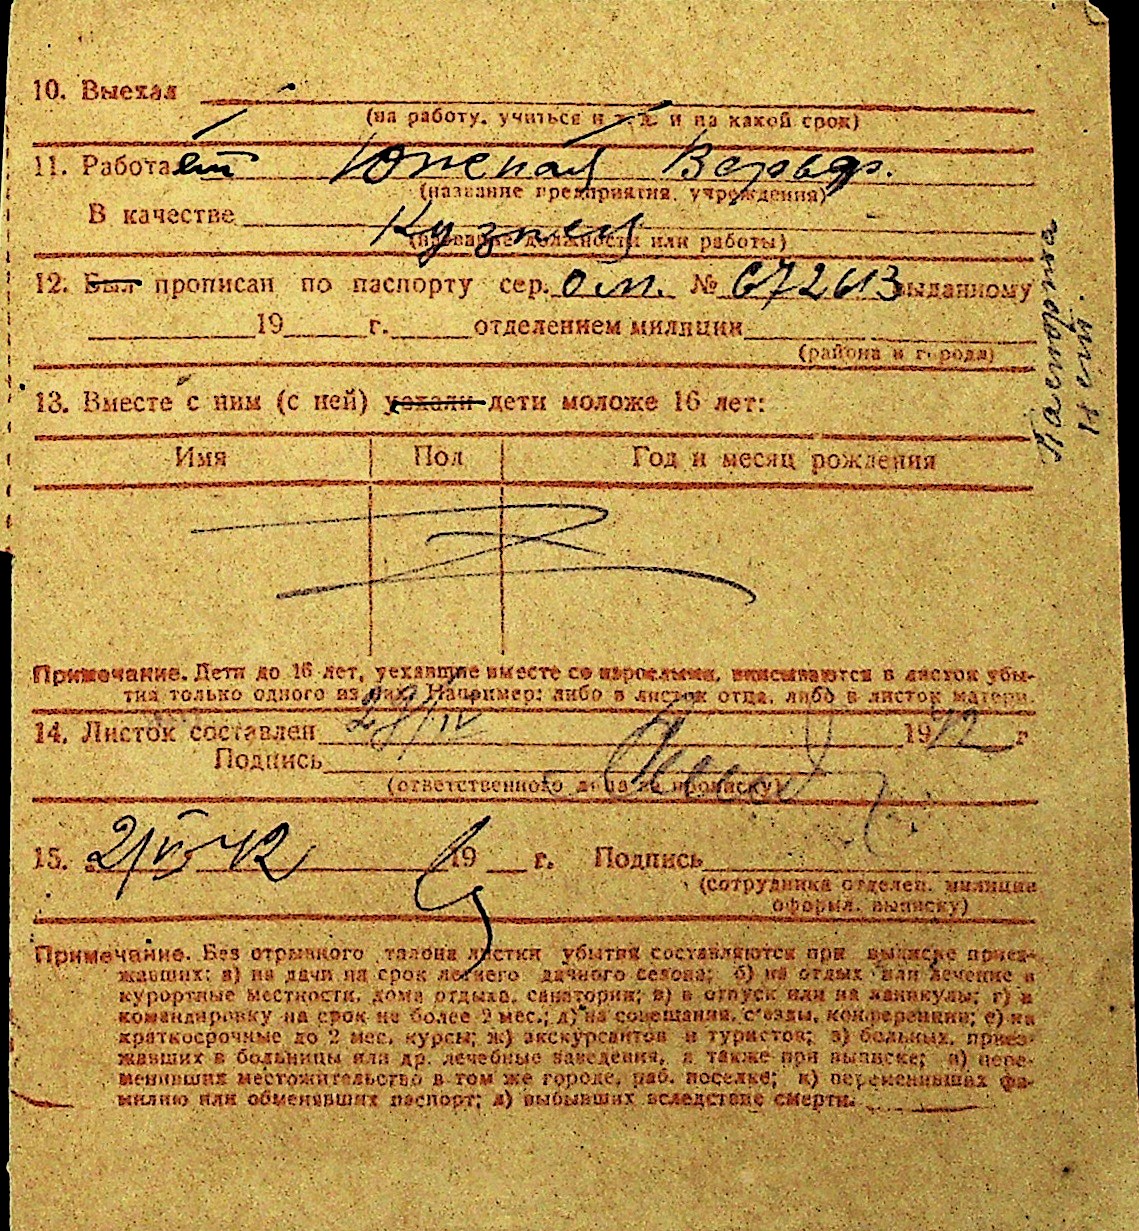 10. Выехал
(на работу, учиться и т. д. и на какой срок)
11. Работает Южная Верфь.
(название предприятия, учреждения)
В качестве Кузнец
(название должности или работы)
12. Был прописан по паспорту сер. № выданному
19 г. отделением милиции
(района и города)
13. Вместе с ним (с ней) уехали дети моложе 16 лет:
Имя Пол Год и месяц рождения
Примечание. Дети до 16 лет, уехавшие вместе со взрослыми, вписываются в листок убы-
тия только одного из них. Например: либо в листок отца, либо в листок матери.
14. Листок составлен 29/IV 1942 г
Подпись
(ответственного лица за прописку)
15. 2/VI-42 19 г. Подпись
(сотрудника отделен. милиции
оформл. выписку)
Примечание. Без отрывного талона листки убытия составляются при выписке приез-
жавших: а) на дачи на срок летнего дачного сезона; б) на отдых или лечение в
курортные местности, дома отдыха, санатории; в) в отпуск или на каникулы; г) в
командировку на срок не более 2 мес.; д) на совещания, съезды, конференции; е) на
краткосрочные до 2 мес. курсы; ж) экскурсантов и туристов; з) больных, приез-
жавших в больницы или др. лечебные заведения, а также при выписке; и) пере-
менивших местожительство в том же городе, раб. поселке; к) переменивших фа-
милию или обменявших паспорт; л) выбывших вследствие смерти.